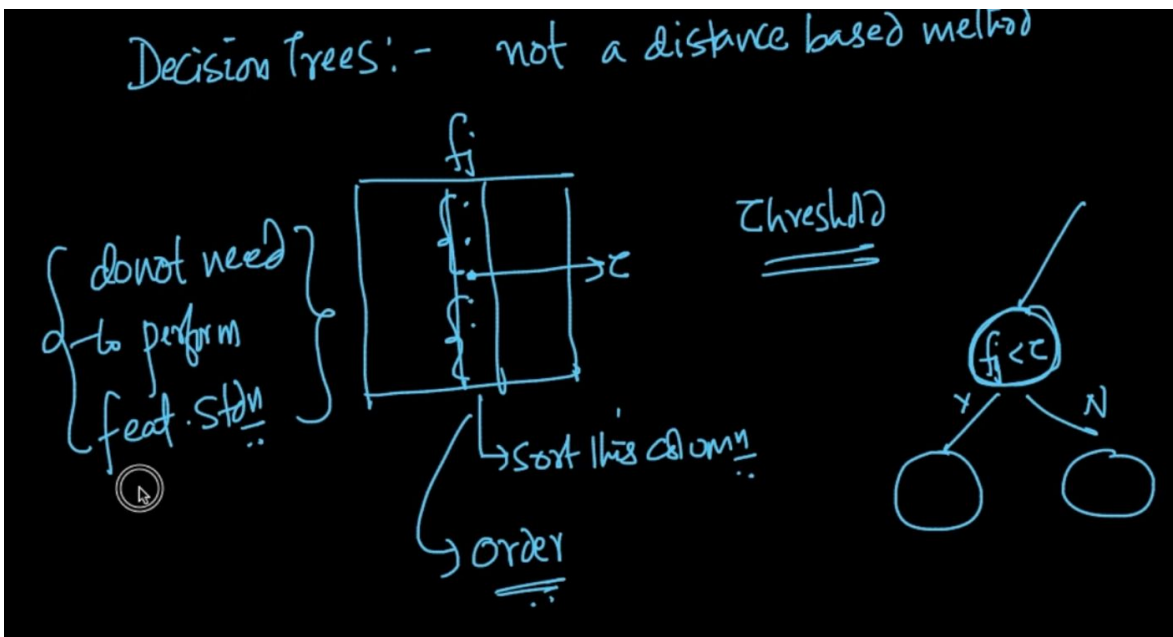 Decision Trees:- not a distance based method
fj
Threshold
do not need
to perform
feat. stdn
τ
fj < τ
Y N
sort this column
order